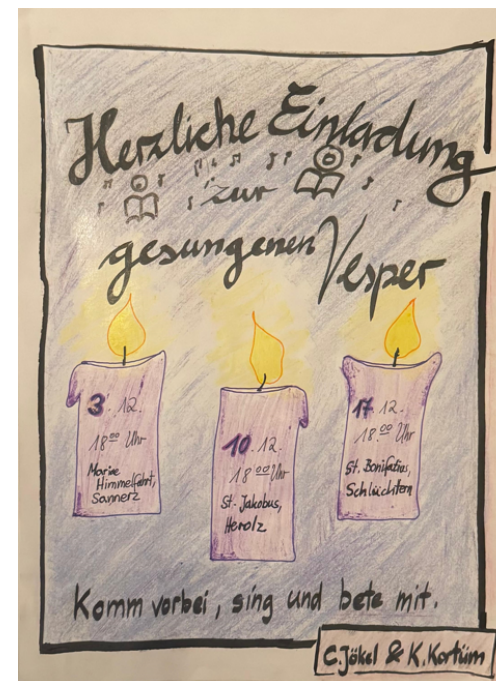 Herzliche Einladung
zur
gesungenen Vesper
3. 12.
18⁰⁰ Uhr
Mariae
Himmelfahrt,
Sannerz
10. 12.
18⁰⁰ Uhr
St. Jakobus,
Herolz
17. 12.
18⁰⁰ Uhr
St. Bonifatius,
Schlüchtern
Komm vorbei, sing und bete mit.
C. Jökel & K. Kortüm